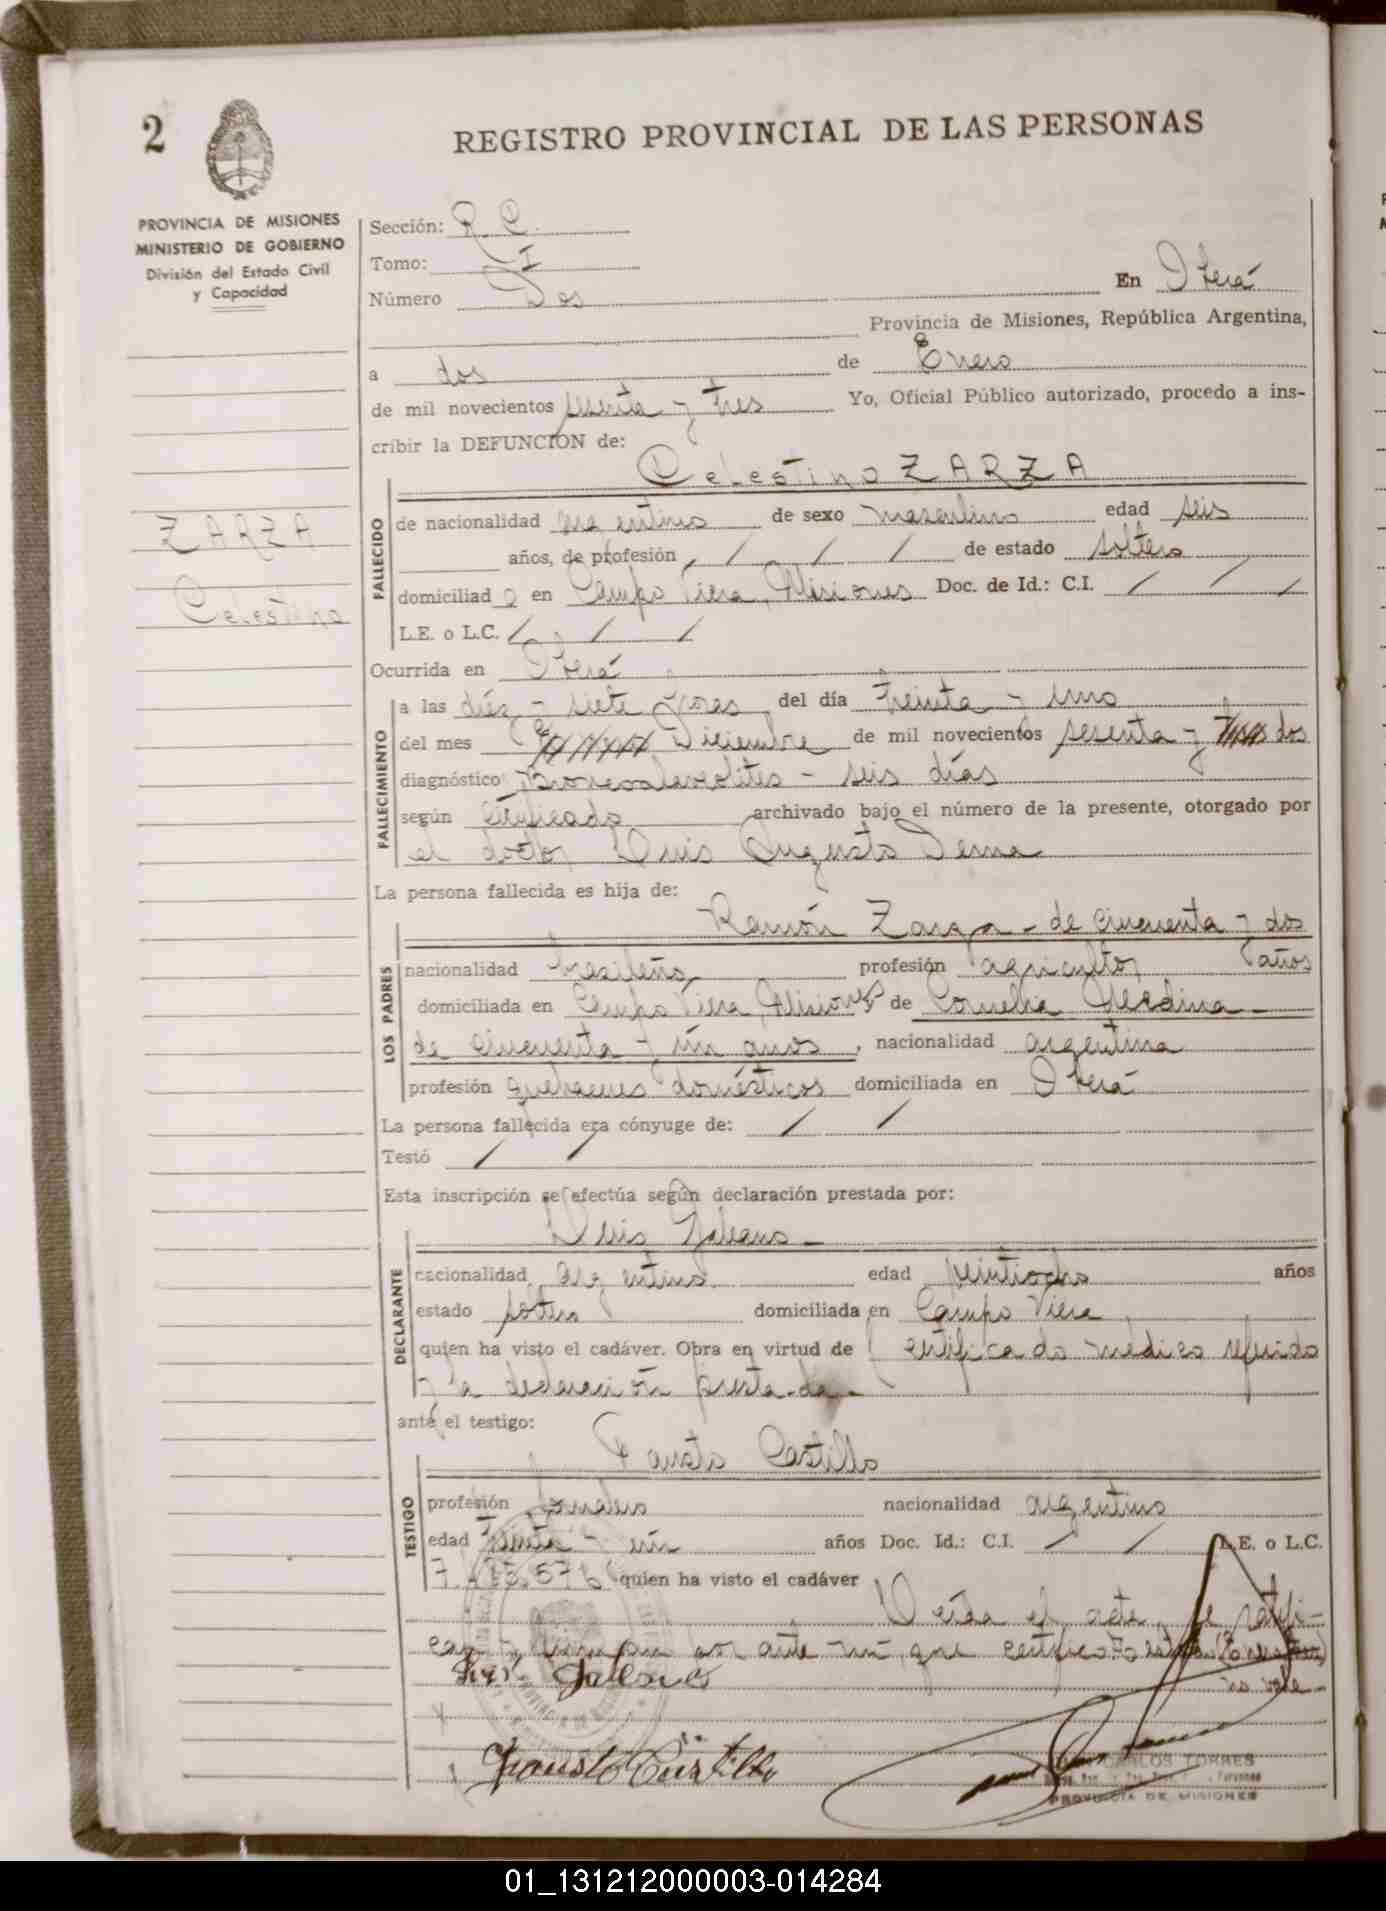 2
REGISTRO PROVINCIAL DE LAS PERSONAS
PROVINCIA DE MISIONES
MINISTERIO DE GOBIERNO
División del Estado Civil
y Capacidad
Sección: R. C.
Tomo: I
Número Dos En Oberá
Provincia de Misiones, República Argentina,
a dos de Enero
de mil novecientos sesenta y tres Yo, Oficial Público autorizado, procedo a ins-
cribir la DEFUNCION de:
Celestino ZARZA
ZARZA
Celestino
FALLECIDO
de nacionalidad argentino de sexo masculino edad seis
años, de profesión / / / de estado soltero
domiciliado en Campo Viera, Misiones Doc. de Id.: C.I. / / /
L.E. o L.C. / / /
Ocurrida en Oberá
FALLECIMIENTO
a las diéz y siete horas del día treinta y uno
del mes Diciembre de mil novecientos sesenta y dos
diagnóstico: - seis días
según certificado archivado bajo el número de la presente, otorgado por
el doctor Luis Augusto
La persona fallecida es hija de:
Ramón Zarza - de cincuenta y dos
LOS PADRES
nacionalidad brasileño profesión agricultor años
domiciliada en Campo Viera, Misiones y de Cornelia
de cincuenta y ún anos, nacionalidad argentina
profesión quehaceres domésticos domiciliada en Oberá
La persona fallecida era cónyuge de: / /
Testó / /
Esta inscripción se efectúa según declaración prestada por:
Luis Galeano -
DECLARANTE
nacionalidad argentino edad veintiocho años
estado soltero domiciliada en Campo Viera
quien ha visto el cadáver. Obra en virtud de certificado médico referido
y la declaración prestada -
ante el testigo:
Fausto Castillo
TESTIGO
profesión jornalero nacionalidad argentino
edad treinta y ún años Doc. Id.: C.I. / / L.E. o L.C.
quien ha visto el cadáver
Leída el acta, se ratifi-
can y firman por ante mí que certifico.
no vale -
Luis Galeano
Fausto Castillo
CARLOS TORRES
PROVINCIA DE MISIONES
01_131212000003-014284